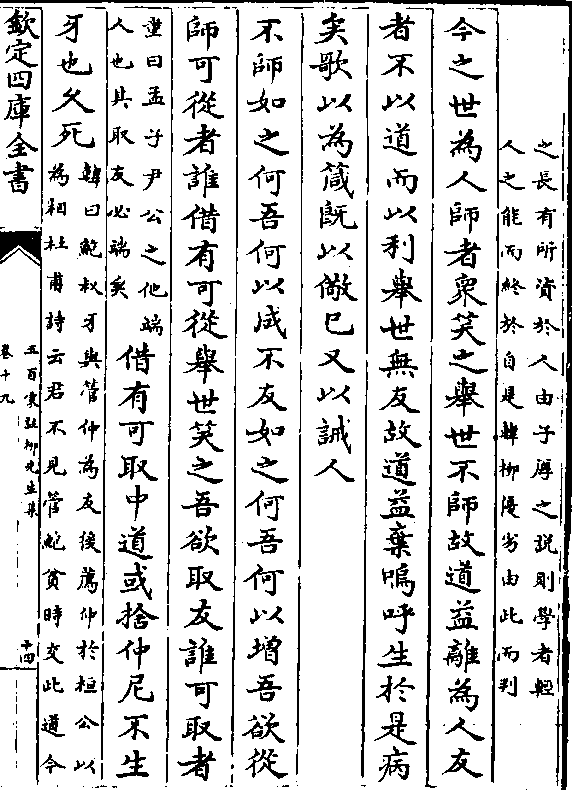 之長有所資於人由子厚之説則學者輕
人之能而終於自是韓柳優劣由此而判
今之世為人師者衆笑之舉世不師故道益離為人友
者不以道而以利舉世無友故道益棄嗚呼生於是病
矣歌以為箴既以儆已又以誡人
不師如之何吾何以成不友如之何吾何以增吾欲從
師可從者誰借有可從舉世笑之吾欲取友誰可取者
童曰孟子尹公之他端
人也其取友必端矣
借有可取中道或捨仲尼不生
牙也久死
韓曰鮑叔牙與管仲為友後薦仲於桓公以
為相杜甫詩云君不見管鮑貧時交此道今
欽定四庫全書
五百家註柳先生集
卷十九
十四